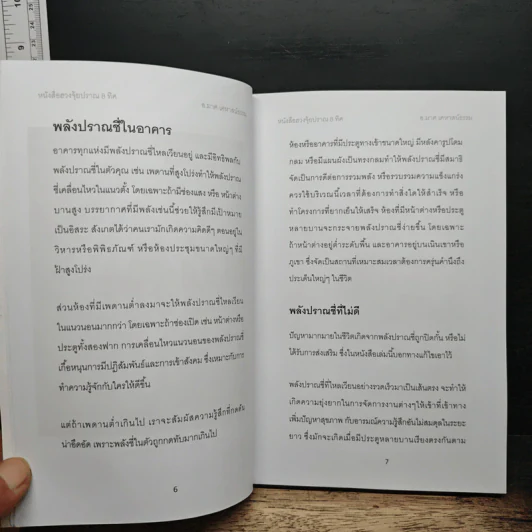 หนังสือฮวงจุ้ยปราณ ๘ ทิศ
พลังปราณชี่ในอาคาร
อาคารทุกแห่งมีพลังปราณชี่ไหลเวียนอยู่ และมีอิทธิพลกับ
พลังปราณชี่ในตัวคุณ เช่น เพดานที่สูงโปร่งทำให้พลังปราณ
ชี่เคลื่อนไหวในแนวตั้ง โดยเฉพาะถ้ามีช่องแสง หรือ หน้าต่าง
บานสูง บรรยากาศที่มีพลังเช่นนี้ช่วยให้รู้สึกมีเป้าหมาย
เป็นอิสระ สังเกตได้ว่าคนเรามักเกิดความคิดดีๆ ตอนอยู่ใน
วิหารหรือพิพิธภัณฑ์ หรือห้องประชุมขนาดใหญ่ๆ ที่มี
ฝ้าสูงโปร่ง
ส่วนห้องที่มีเพดานต่ำลงมาจะให้พลังปราณชี่ไหลเวียน
ในแนวนอนมากกว่า โดยเฉพาะถ้าช่องเปิด เช่น หน้าต่างหรือ
ประตูทั้งสองฟาก การเคลื่อนไหวแนวนอนของพลังปราณชี่
เกื้อหนุนการมีปฏิสัมพันธ์และการเข้าสังคม ซึ่งเหมาะกับการ
ทำความรู้จักกับใครให้ดีขึ้น
แต่ถ้าเพดานต่ำเกินไป เราจะสัมผัสความรู้สึกที่กดดัน
น่าอึดอัด เพราะพลังชี่ในตัวถูกกดทับมากเกินไป
6
หนังสือฮวงจุ้ยปราณ ๘ ทิศ
ห้องหรืออาคารที่มีประตูทางเข้าขนาดใหญ่ มีหลังคารูปโดม
กลม หรือมีแผนผังเป็นทรงกลมทำให้พลังปราณชี่มีสมาธิ
จัดเป็นการดีต่อการรวมพลัง หรือรวบรวมความแข็งแกร่ง
ควรใช้บริเวณนี้เวลาที่ต้องการทำสิ่งใดให้สำเร็จ หรือ
ทำโครงการที่ยากเย็นให้เสร็จ ห้องที่มีหน้าต่างหรือประตู
หลายบานจะกระจายพลังปราณชี่ง่ายขึ้น โดยเฉพาะ
ถ้าหน้าต่างอยู่ต่ำระดับพื้น และอาคารอยู่บนเนินเขาหรือ
ภูเขา ซึ่งจัดเป็นสถานที่เหมาะสมเวลาต้องการครุ่นคำนึงถึง
ประเด็นใหญ่ๆ ในชีวิต
พลังปราณชี่ที่ไม่ดี
ปัญหามากมายในชีวิตเกิดจากพลังปราณชี่ถูกปิดกั้น หรือไม่
ได้รับการส่งเสริม ซึ่งในหนังสือเล่มนี้บอกทางแก้ไขเอาไว้
พลังปราณชี่ที่ไหลเวียนอย่างรวดเร็วมาเป็นเส้นตรง จะทำให้
เกิดความยุ่งยากในการจัดการงานต่างๆให้เข้าที่เข้าทาง
เพิ่มปัญหาสุขภาพ กับอารมณ์ความรู้สึกอันไม่สมดุลในระยะ
ยาว ซึ่งมักจะเกิดเมื่อมีประตูหลายบานเรียงตรงกันตาม
7